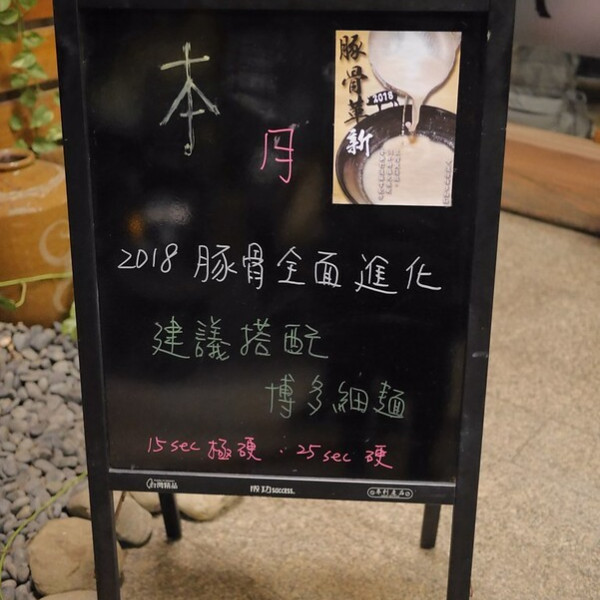 本
月
豚骨革新
2018
2018 豚骨全面進化
建議搭配
博多細麵
15sec 極硬 . 25sec 硬
台灣精品
成功 success.
專利產品